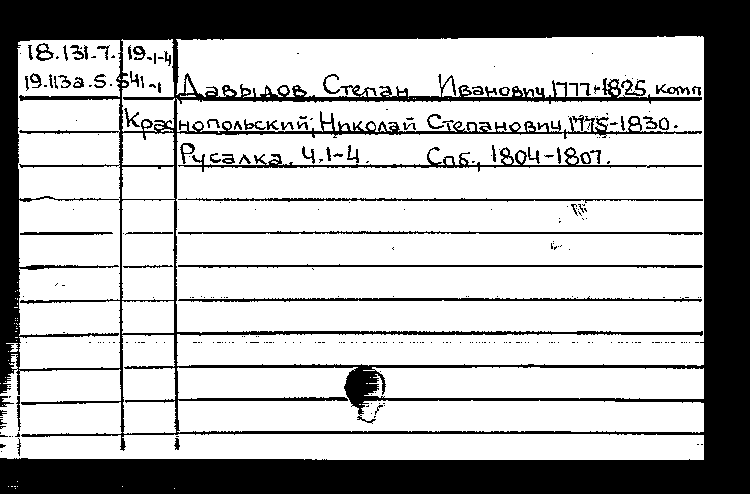 18.131.7. 19.1-4
19.113а.5.541-1 Давыдов, Степан Иванович, 1777-1825, комп
Краснопольский, Николай Степанович, 1775-1830.
Русалка. Ч.1-4. Спб., 1804-1807.